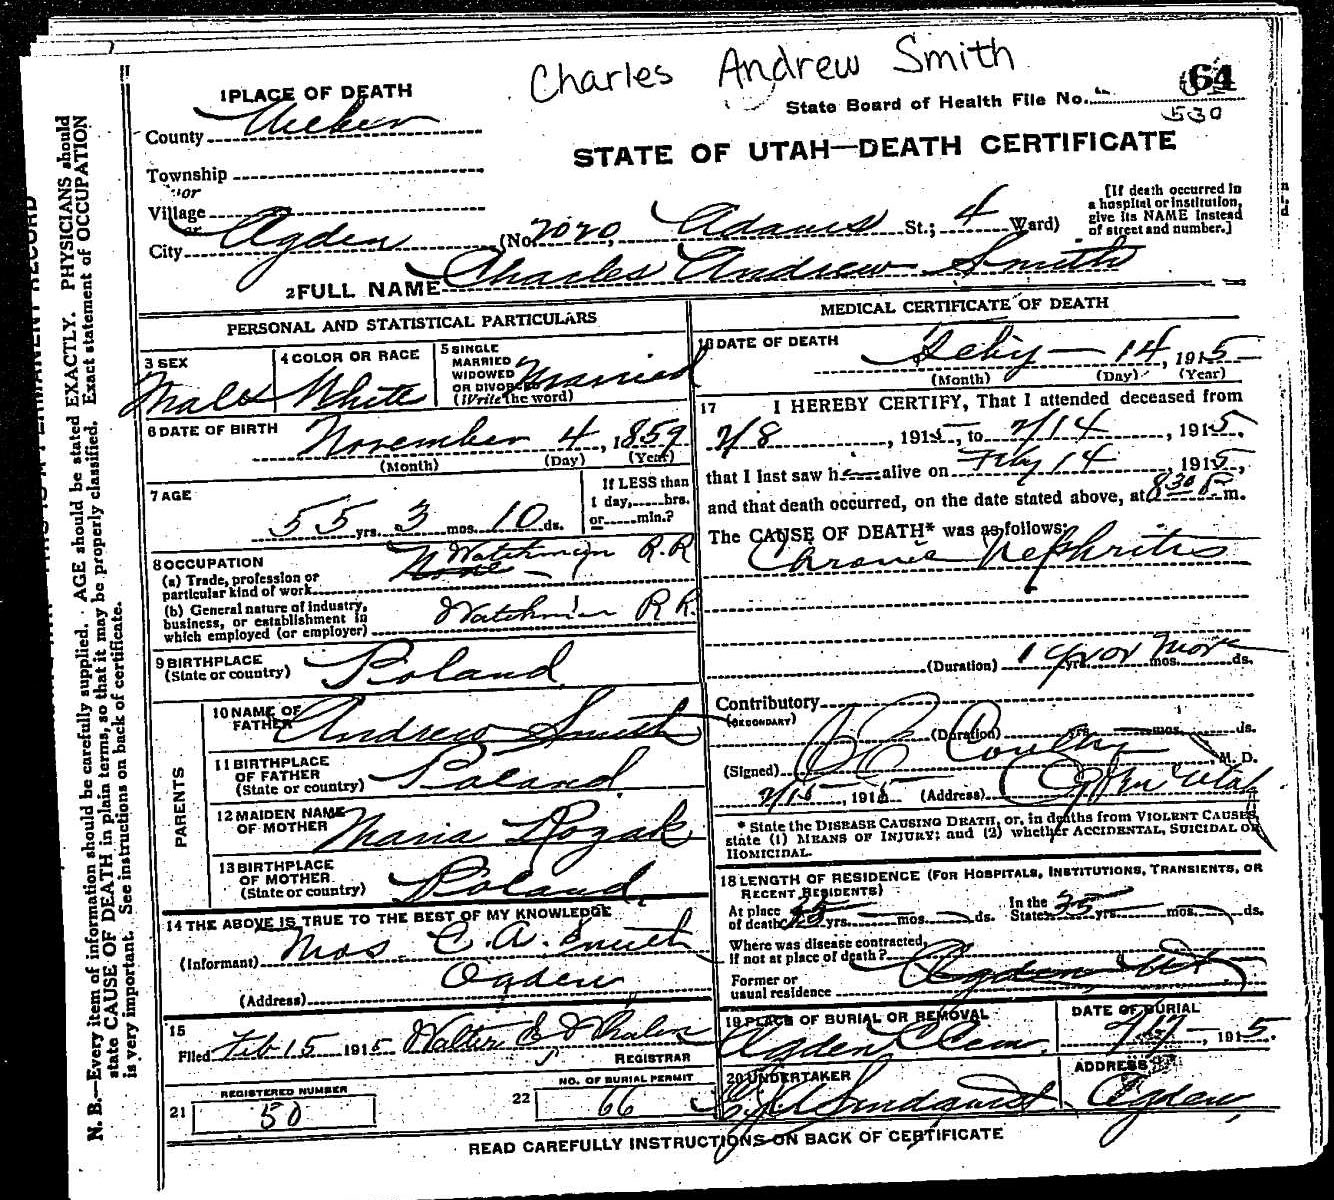 Charles Andrew Smith
1 PLACE OF DEATH
State Board of Health File No. 64
530
County Weber
STATE OF UTAH—DEATH CERTIFICATE
Township
or
Village
or
City Ogden (No. 2020, Adams St.; 4 Ward)
[If death occurred in
a hospital or institution,
give its NAME instead
of street and number.]
2 FULL NAME Charles Andrew Smith
PERSONAL AND STATISTICAL PARTICULARS
3 SEX
Male
4 COLOR OR RACE
White
5 SINGLE
MARRIED
WIDOWED
OR DIVORCED
(Write the word)
Married
6 DATE OF BIRTH
November 4, 1859
(Month) (Day) (Year)
7 AGE
55 yrs. 3 mos. 10 ds.
If LESS than
1 day, hrs.
or min.?
8 OCCUPATION
(a) Trade, profession or
particular kind of work None Watchman R.R
(b) General nature of industry,
business, or establishment in
which employed (or employer) Watchman R R.
9 BIRTHPLACE
(State or country) Poland
PARENTS
10 NAME OF
FATHER Andrew Smith
11 BIRTHPLACE
OF FATHER
(State or country) Poland
12 MAIDEN NAME
OF MOTHER Maria Kozak
13 BIRTHPLACE
OF MOTHER
(State or country) Poland
14 THE ABOVE IS TRUE TO THE BEST OF MY KNOWLEDGE
(Informant) Mrs C. A. Smith
(Address) Ogden
15
Filed Feb 15 1915 Walter E Whalen
REGISTRAR
REGISTERED NUMBER
21 50
NO. OF BURIAL PERMIT
22 66
MEDICAL CERTIFICATE OF DEATH
16 DATE OF DEATH
Feby — 14, 1915
(Month) (Day) (Year)
17 I HEREBY CERTIFY, That I attended deceased from
2/8, 1915, to 2/14, 1915,
that I last saw h alive on Feby 14, 1915,
and that death occurred, on the date stated above, at 8 30 P. m.
The CAUSE OF DEATH* was as follows:
Chronic Nephritis
(Duration) 1 yrs or mos. More ds.
Contributory
(SECONDARY)
(Duration) yrs. mos. ds.
(Signed) M. D.
2/15, 1915 (Address) Ogden Utah
* State the DISEASE CAUSING DEATH, or, in deaths from VIOLENT CAUSES,
state (1) MEANS OF INJURY; and (2) whether ACCIDENTAL, SUICIDAL OR
HOMICIDAL.
18 LENGTH OF RESIDENCE (FOR HOSPITALS, INSTITUTIONS, TRANSIENTS, OR
RECENT RESIDENTS)
At place
of death yrs. mos. ds.
In the
State 35 yrs. mos. ds.
Where was disease contracted,
if not at place of death?
Former or
usual residence Ogden Ut
19 PLACE OF BURIAL OR REMOVAL
Ogden Cem.
DATE OF BURIAL
2/17, 1915.
20 UNDERTAKER
Lindquist
ADDRESS
Ogden,
READ CAREFULLY INSTRUCTIONS ON BACK OF CERTIFICATE
N. B.—Every item of information should be carefully supplied. AGE should be stated EXACTLY. PHYSICIANS should
state CAUSE OF DEATH in plain terms, so that it may be properly classified. Exact statement of OCCUPATION
is very important. See instructions on back of certificate.
PERMANENT RECORD